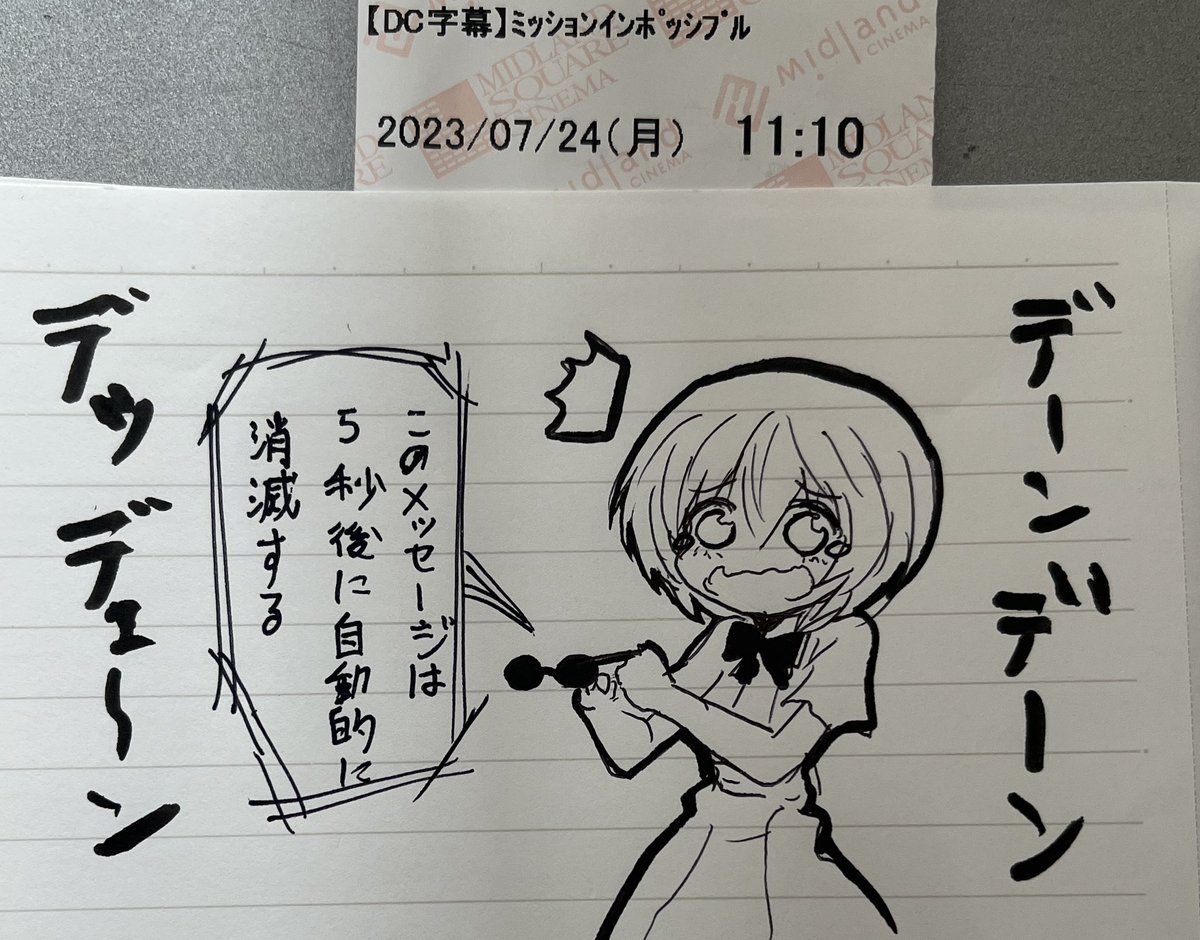 【DC字幕】ミッションインポッシブル
2023/07/24(月) 11:10
MIDLAND
SQUARE
CINEMA
midland
CINEMA
midland
CINEMA
デーンデーン
このメッセージは
5秒後に自動的に
消滅する
デッデェ〜ン